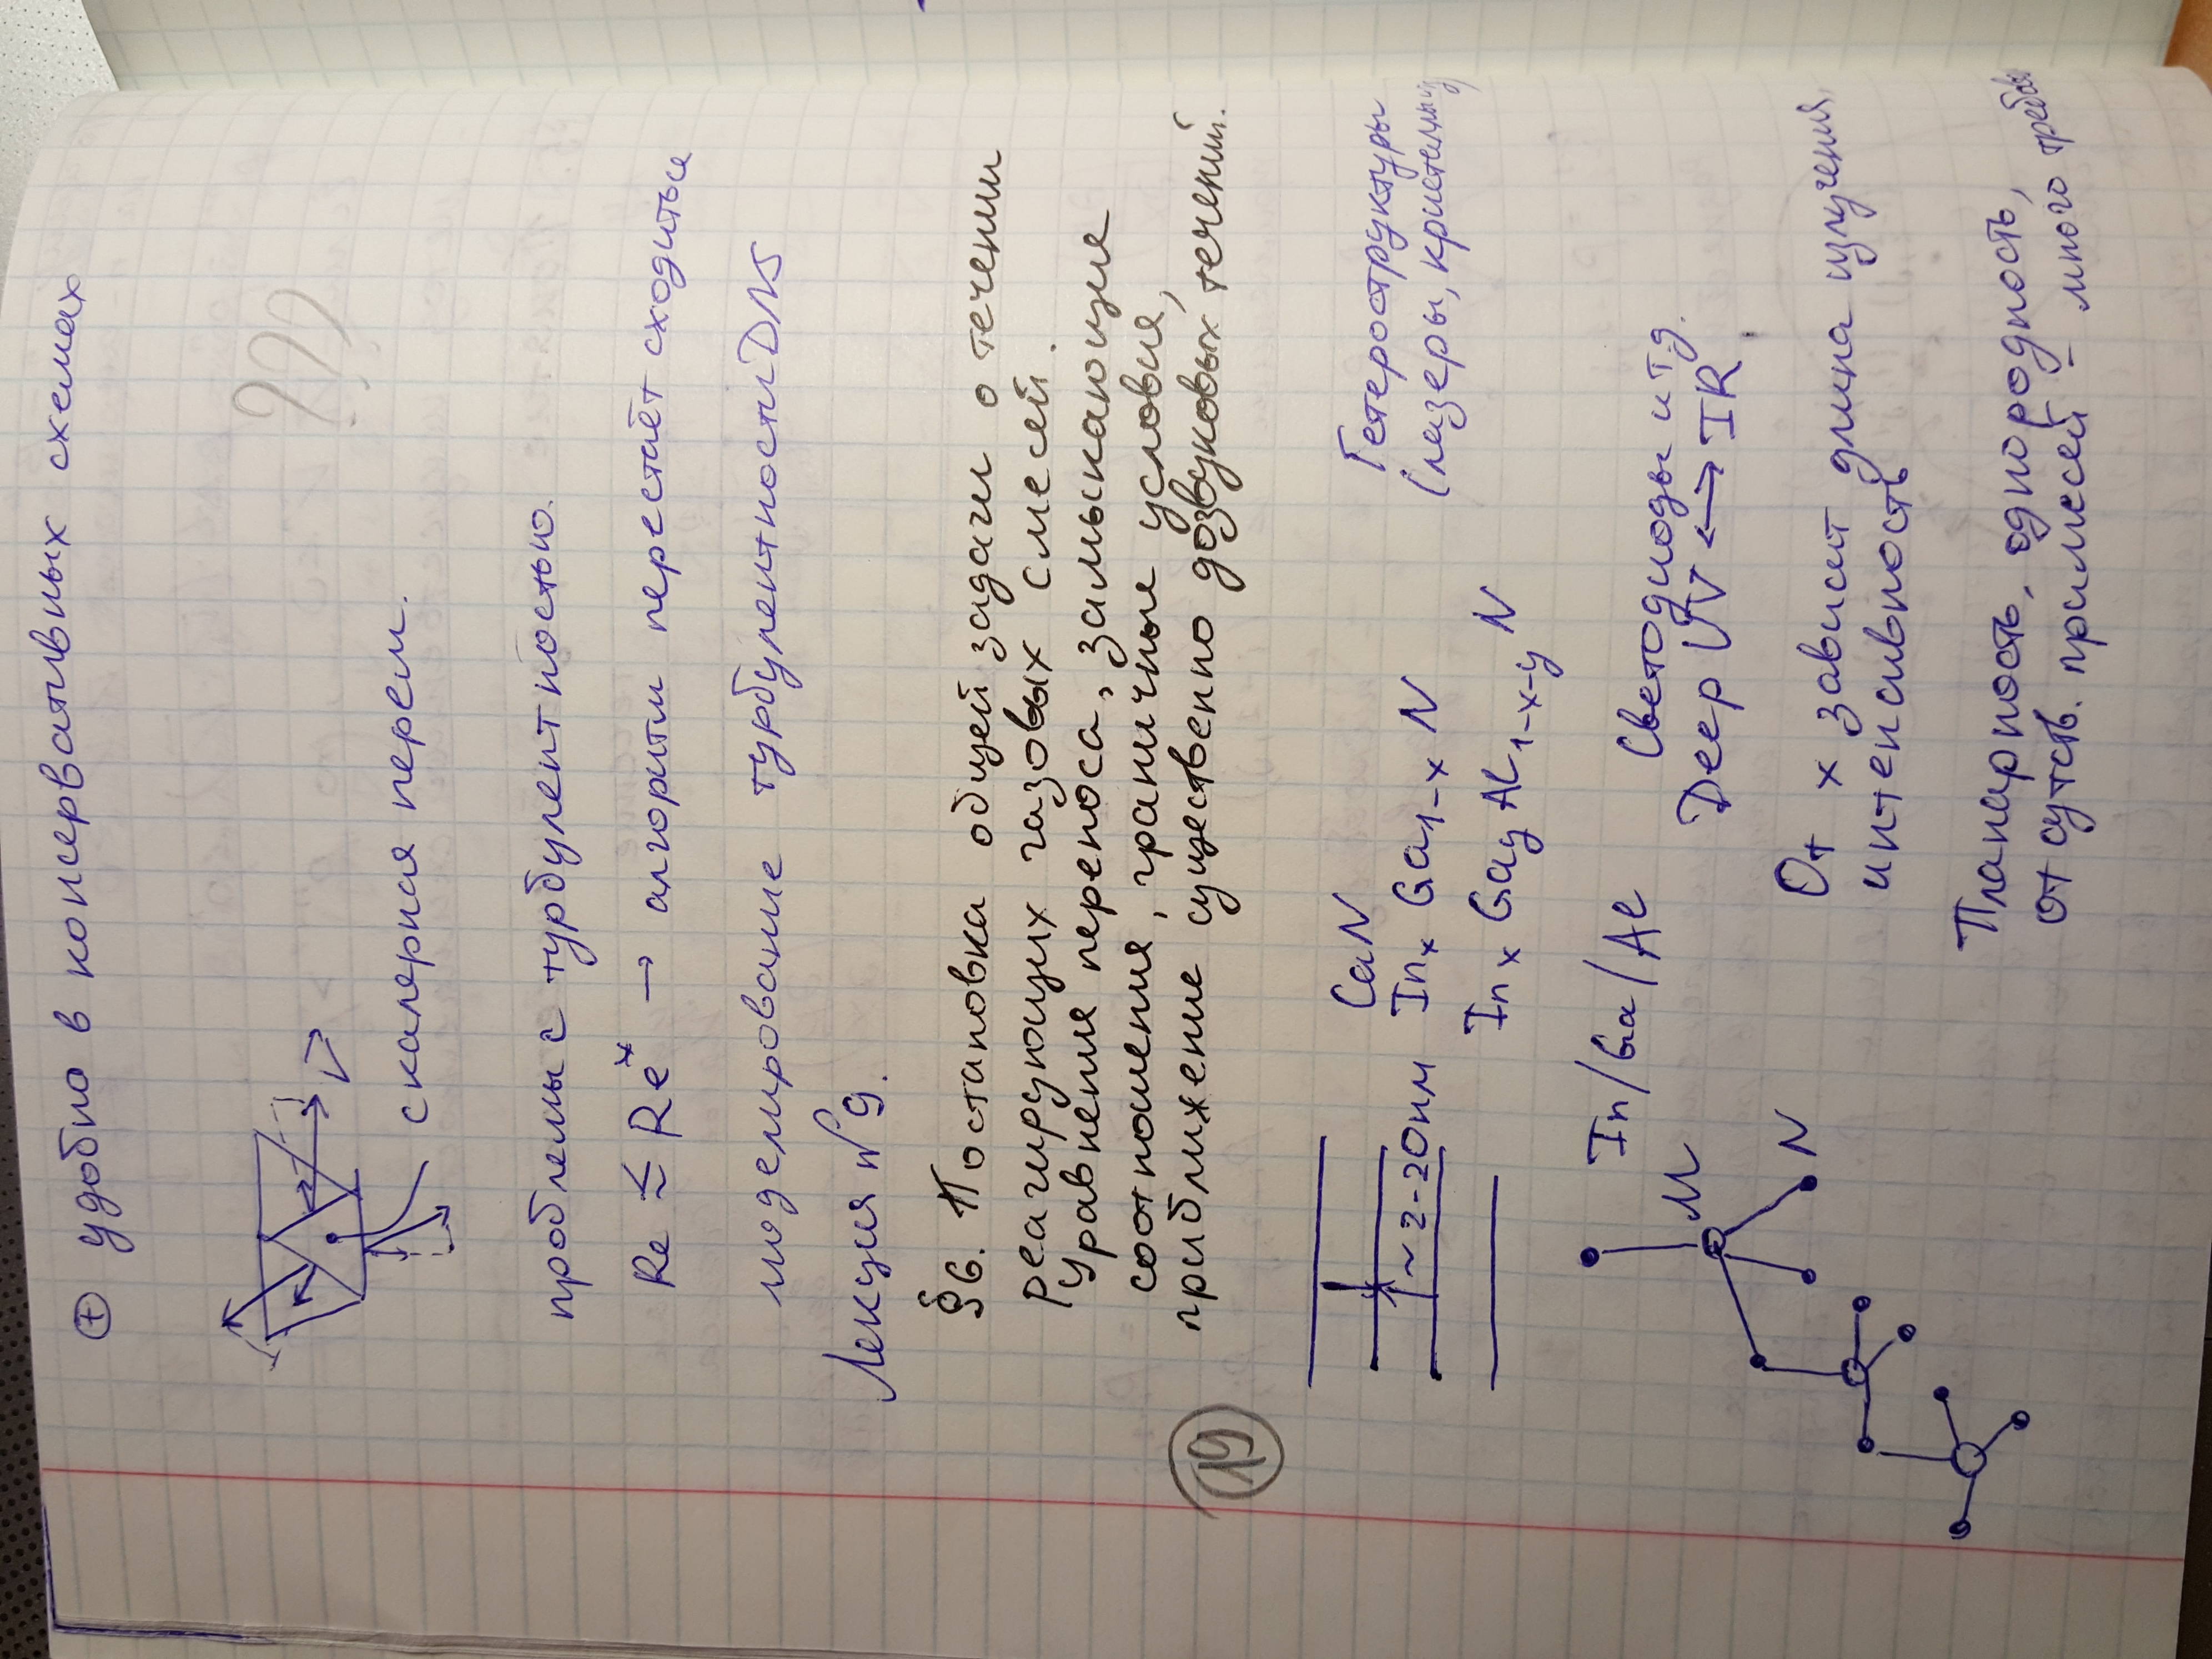 ⊕ удобно в консервативных схемах
???
V
скалярная перем.
проблемы с турбулентностью.
Re ≲ Re* → алгоритм перестаёт сходиться
моделирование турбулентности DNS
Лекция № 9.
§6. Постановка общей задачи о течении
реагирующих газовых смесей.
Уравнения переноса, замыкающие
соотношения, граничные условия,
приближение существенно дозвуковых течений.
19
GaN
Гетероструктуры
~2-20нм InₓGa₁₋ₓN
(лазеры, кристаллы
InₓGa_yAl₁₋ₓ₋yN
In/Ga/Al
Светодиоды и т.д.
M
Deep UV ↔ IR
N
От x зависит длина излучения,
интенсивность
Планарность, однородность,
отсутств. примесей - много требов